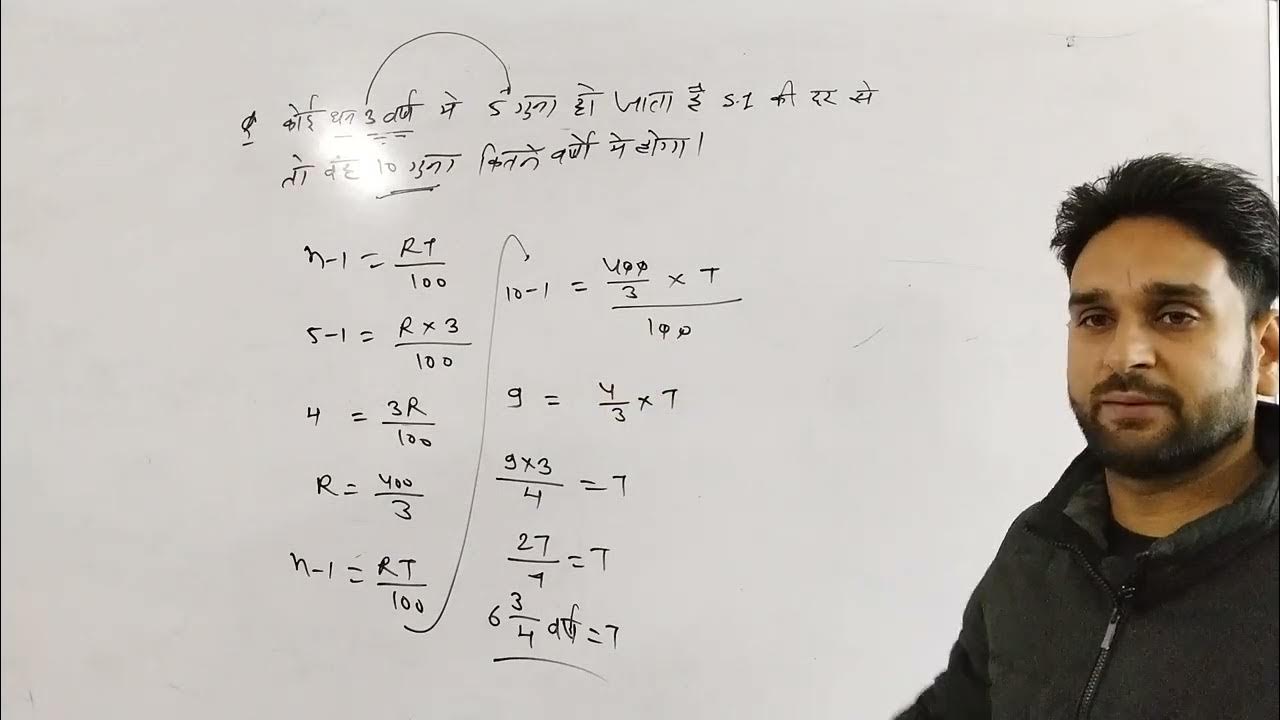 Q कोई धन 3 वर्ष मे 5 गुना हो जाता है S.I की दर से
तो वह 10 गुना कितने वर्षो मे होगा।
n-1 = RT/100
5-1 = R×3/100
4 = 3R/100
R = 400/3
n-1 = RT/100
10-1 = 400/3 × T/100
9 = 4/3 × T
9×3/4 = T
27/4 = T
6 3/4 वर्ष = T